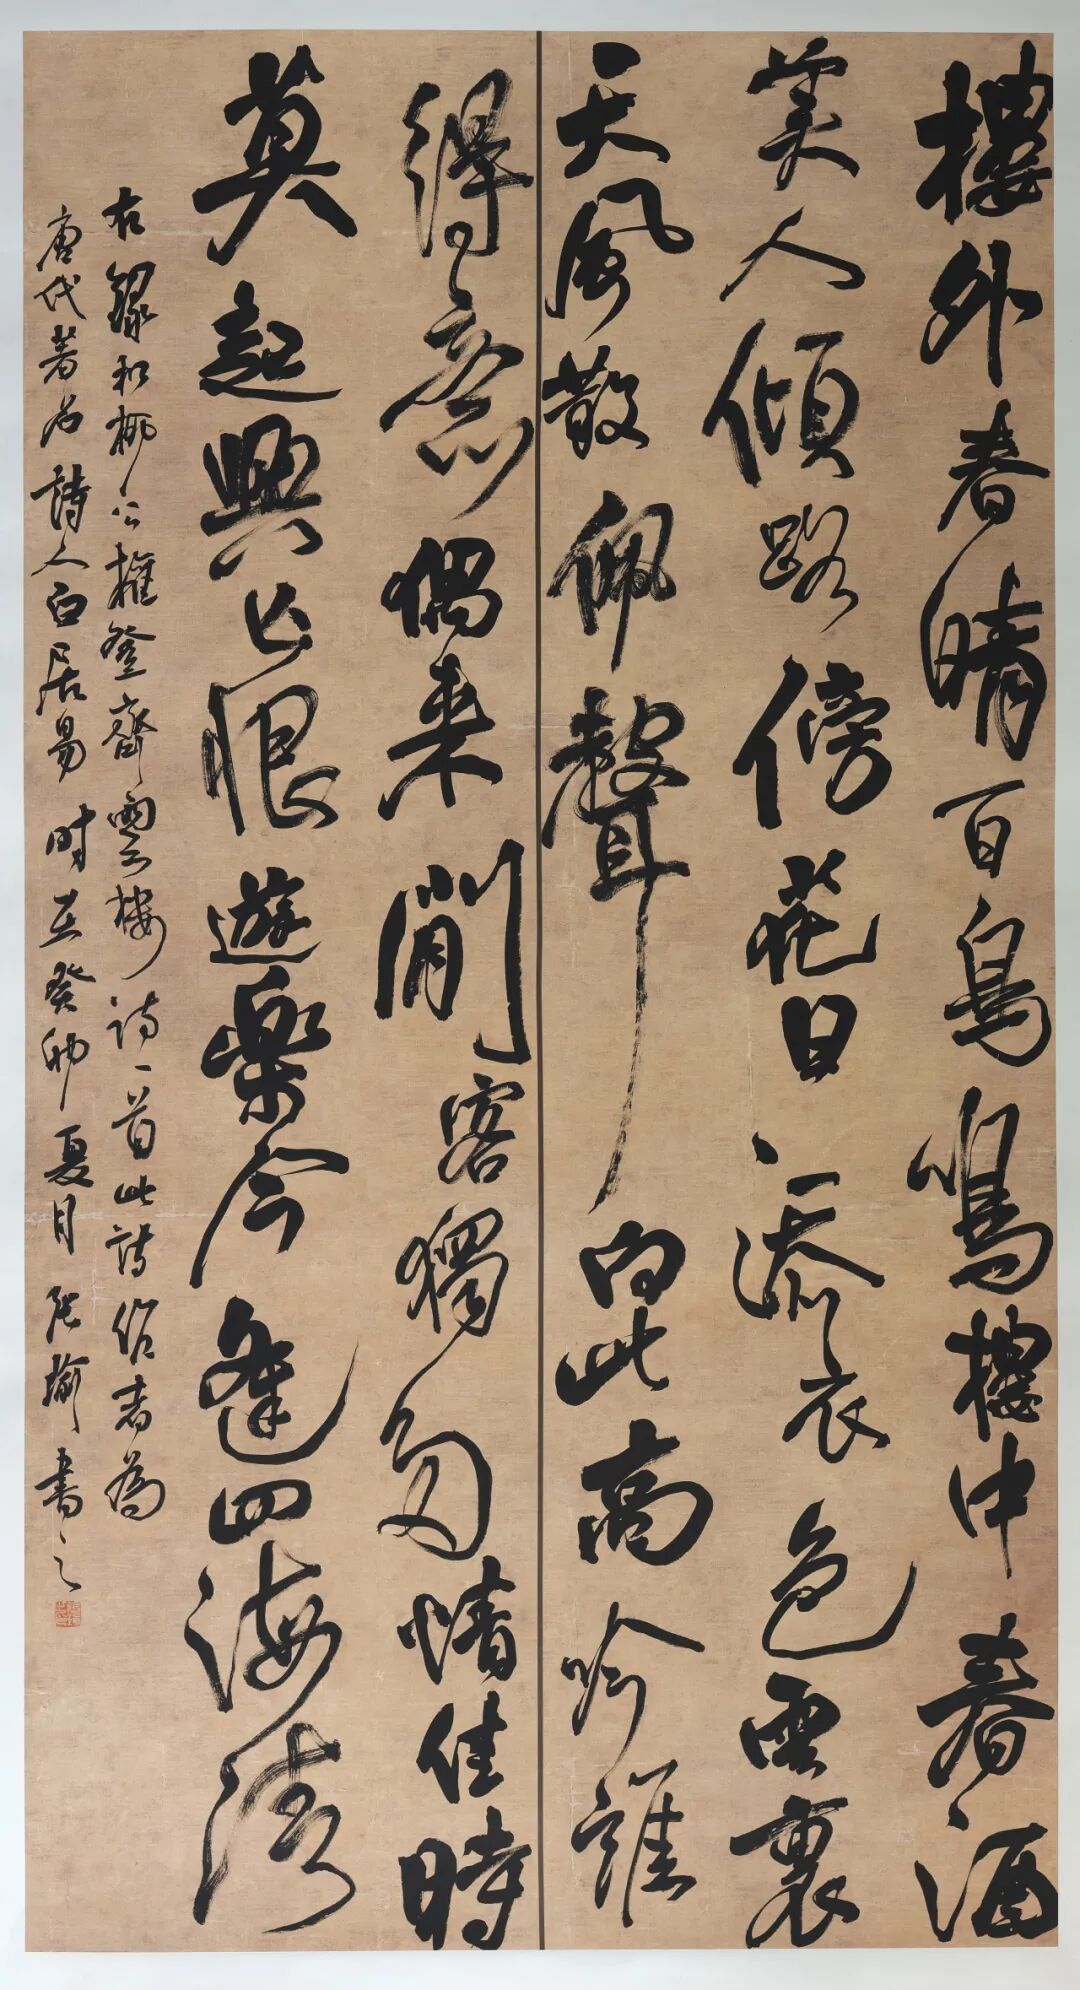 樓外春晴百鳥鳴樓中春酒
美人傾路傍花日添衣色雲裏
天風散佩聲向此高吟誰
得意偶来閒客獨多情佳時
莫起興亡恨遊樂今逢四海清
右錄和柳公權登齊雲樓詩一首此詩作者為
唐代著名詩人白居易 时在癸卯夏月張瑜書之